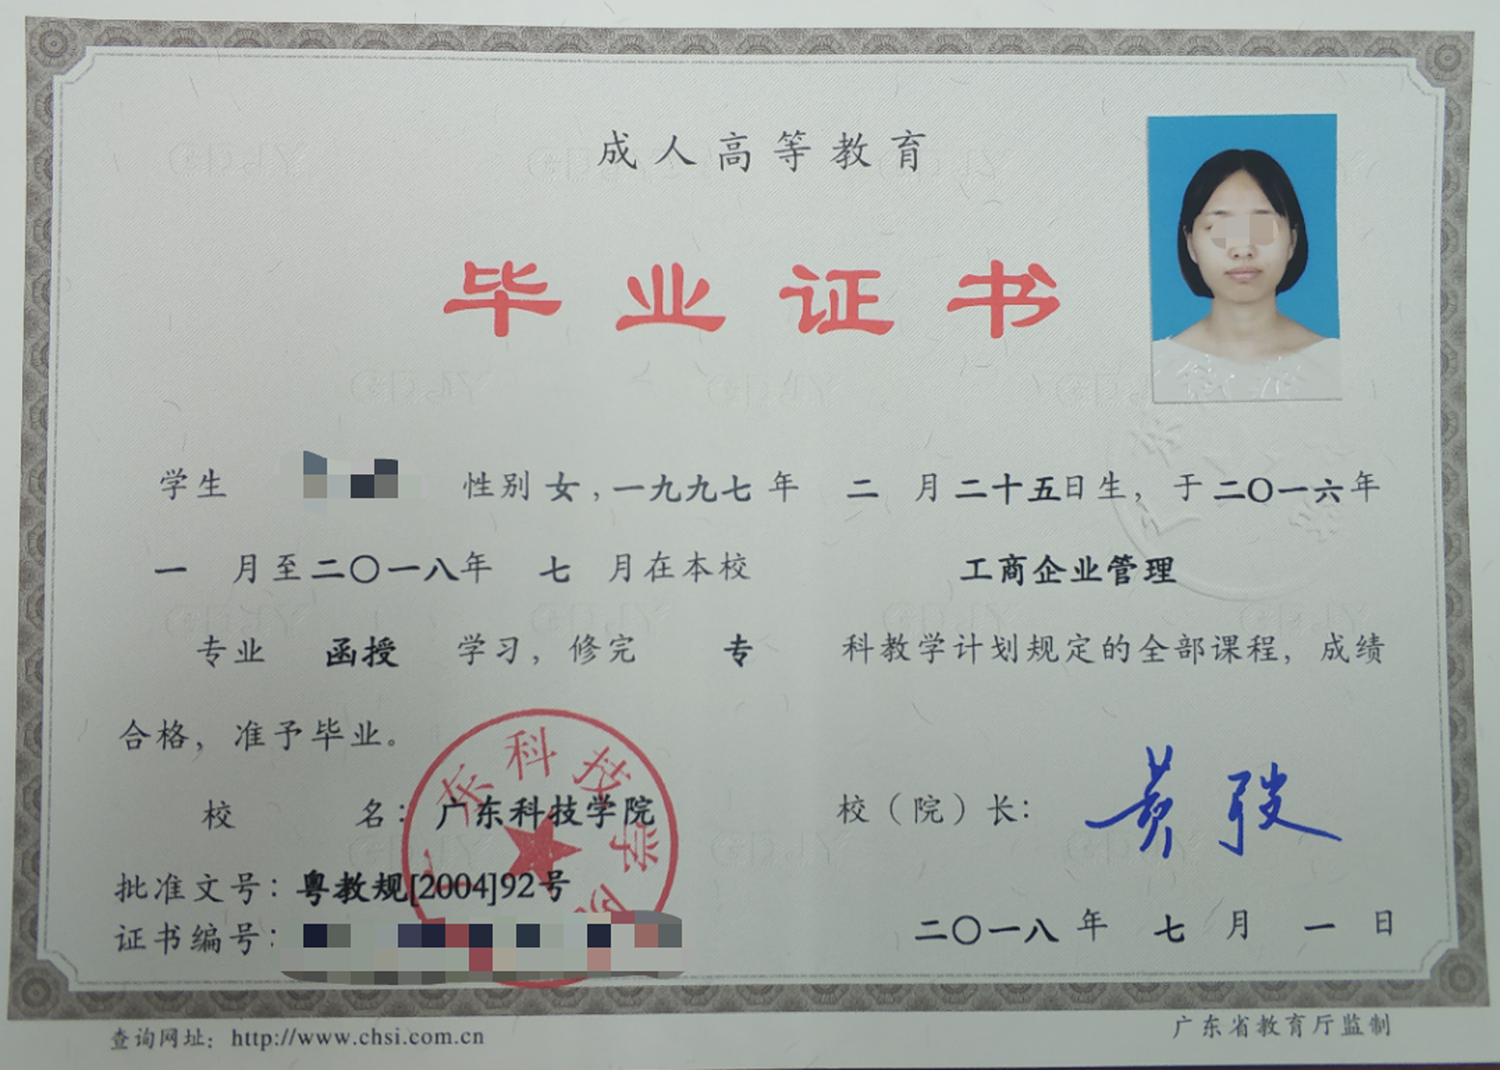 成人高等教育
毕业证书
学生 性别女，一九九七年 二 月二十五日生，于二〇一六年
一 月至二〇一八年 七 月在本校 工商企业管理
专业 函授 学习，修完 专 科教学计划规定的全部课程，成绩
合格，准予毕业。
校 名：广东科技学院
校（院）长：
批准文号：粤教规[2004]92号
证书编号：
二〇一八年 七 月 一 日
东科技学
查询网址：http://www.chsi.com.cn
广东省教育厅监制